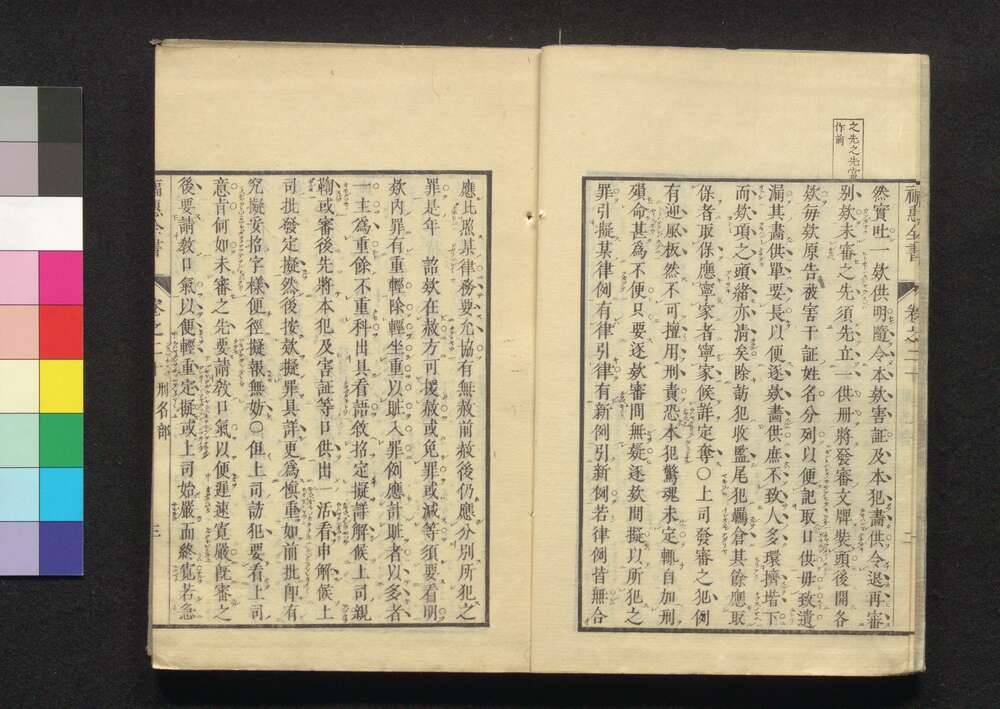 之先之先當
作前
福惠全書
卷之二十
然實吐一欵供明隨令本欵害証及本犯畵供令退再審
別欵未審之先須先立一供册將發審文牌裝頭後開各
欵每欵原告被害干証姓名分列以便記取口供毋致遺
漏其畵供單要長以便逐欵畵供庶不致人多環擠堦下
而欵項之頭緒亦淸矣除訪犯收監尾犯羈倉其餘應取
保者取保應寧家者寧家候詳定奪〇上司發審之犯例
有迎風板然不可擅用刑責恐本犯驚魂未定輙自加刑
殞命甚爲不便只要逐欵審問無疑逐欵問擬以所犯之
罪引擬某律例有律引律有新例引新例若律例皆無合
應比照某律務要允協有無赦前赦後仍應分別所犯之
罪是年 詔欵在赦方可援赦或免罪或减等須要看明
欵內罪有重輕除輕坐重以賍入罪例應計賍者以多者
一主爲重餘不重科出具看語敘招定擬詳解候上司親
鞫或審後先將本犯及害証等口供出一活看申解候上
司批發定擬然後按欵擬罪具詳更爲愼重如前批附有
究擬妥招字樣便徑擬報無妨〇但上司訪犯要看上司
意㫖何如未審之先要請敎口氣以便遲速寬嚴旣審之
後要請敎口氣以便輕重定擬或上司始嚴而終寬若急
福惠全書
卷之二十 刑名部
三